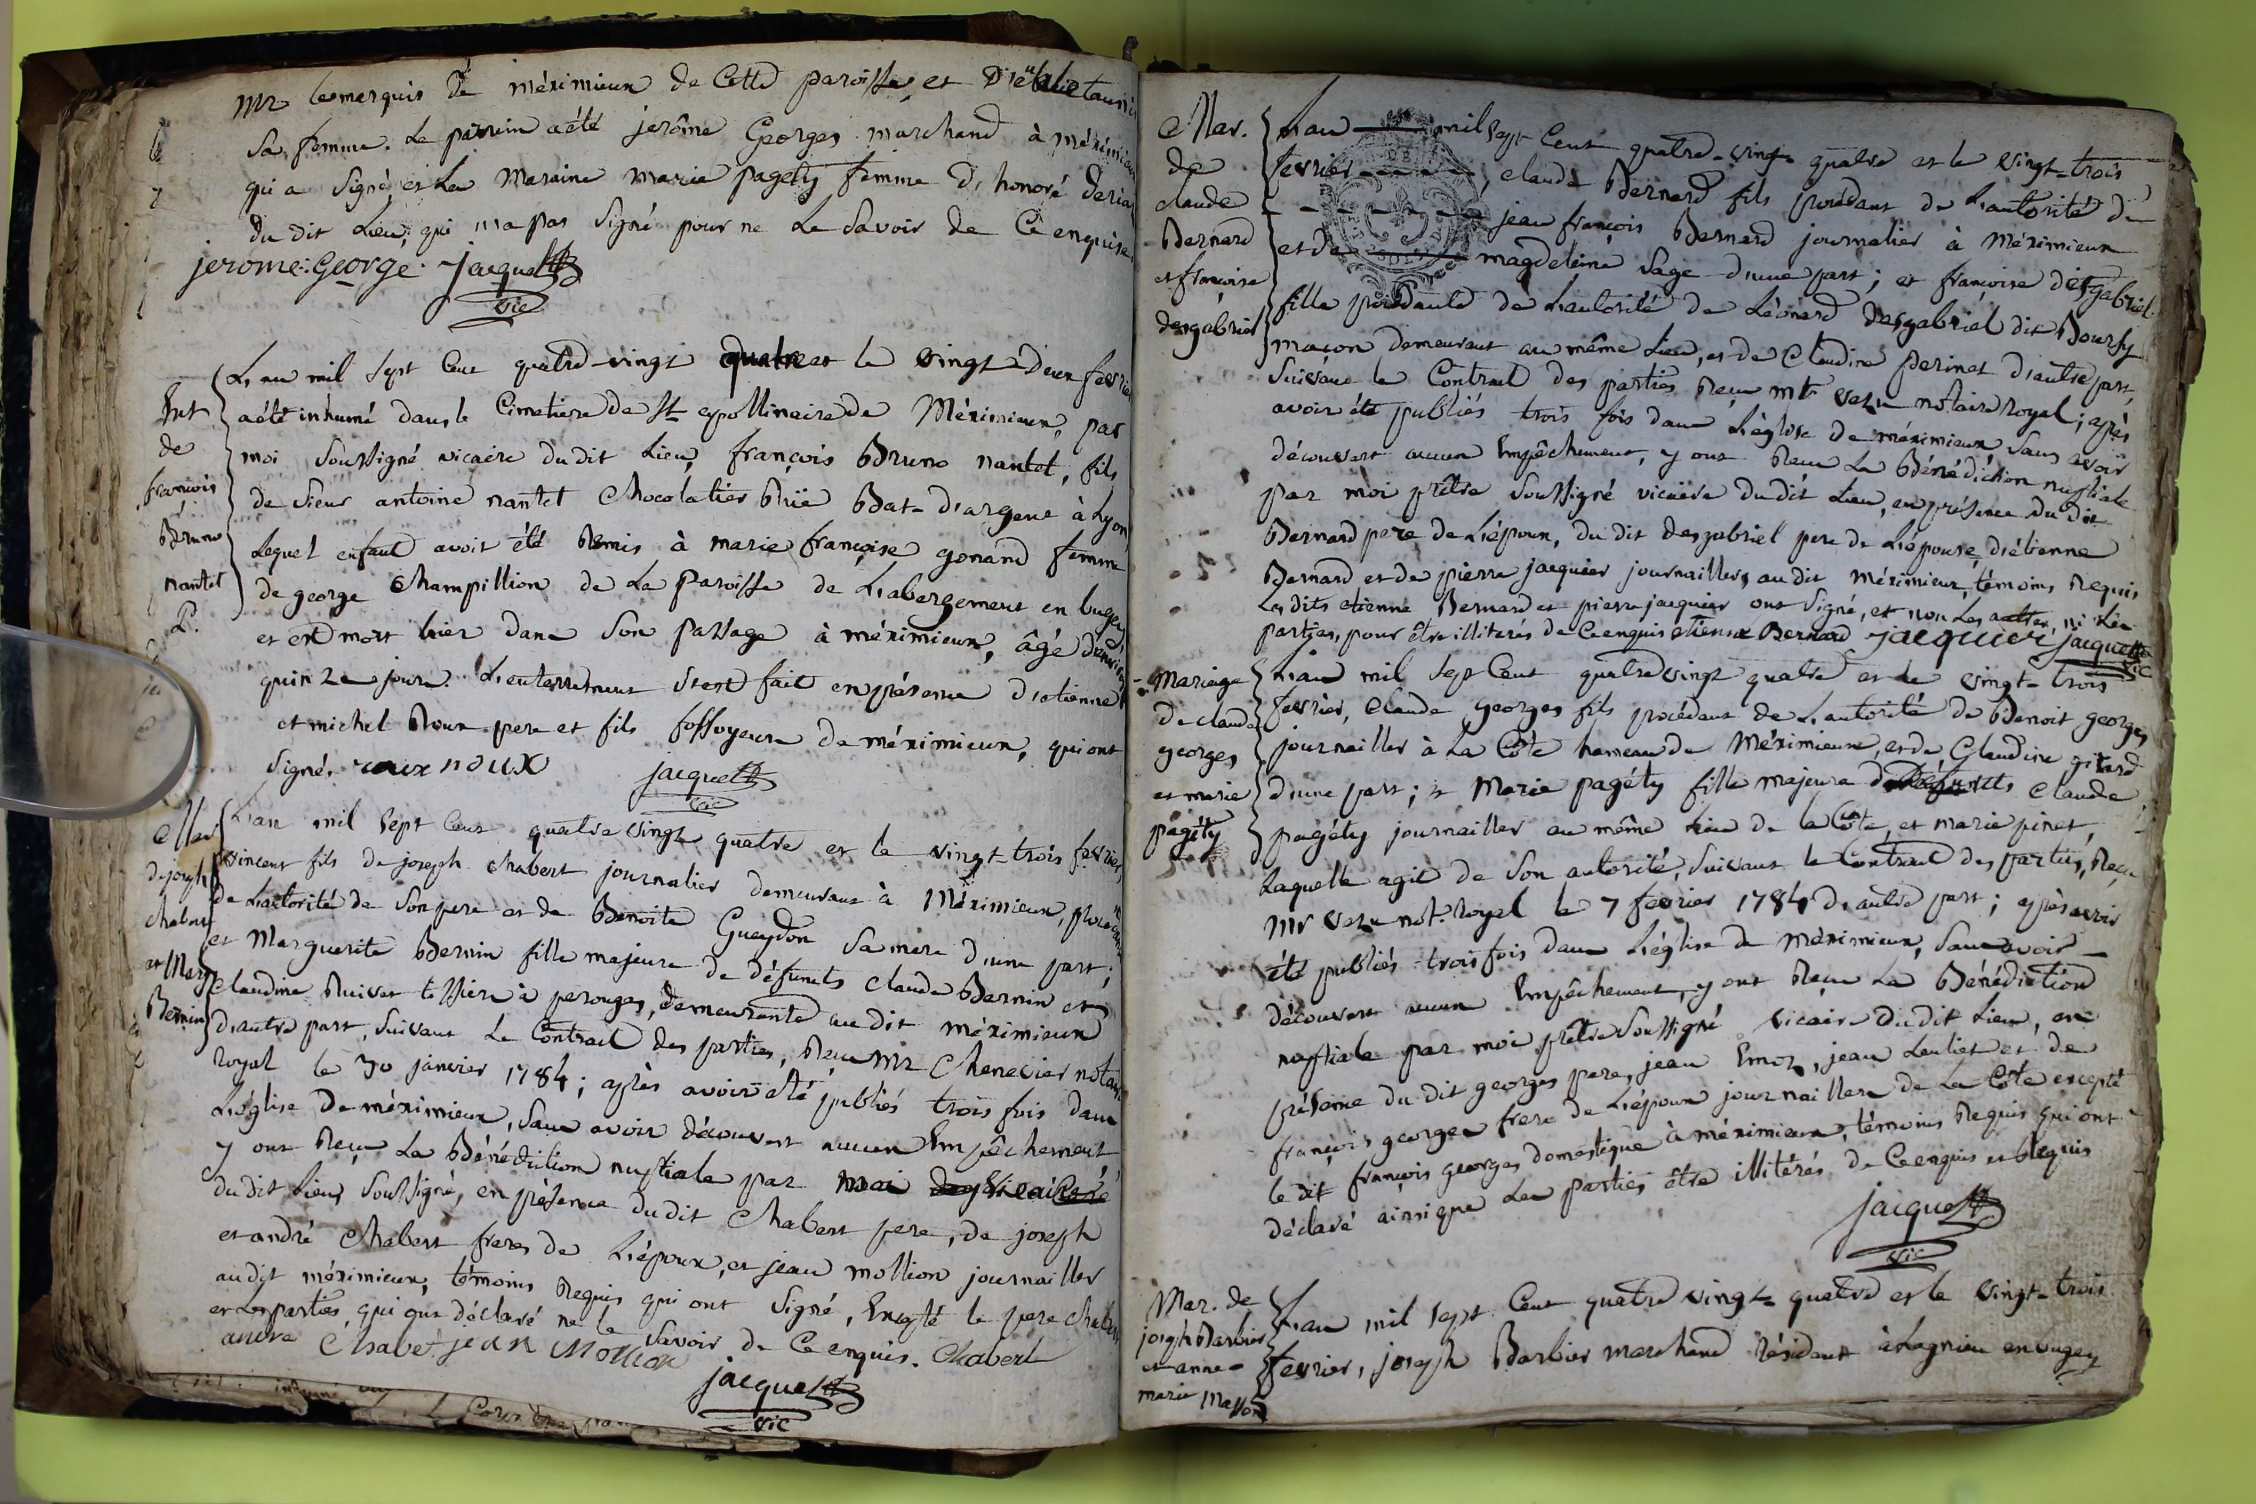 Mr le merquis de méximieux de Cette paroisse, et D'
Sa femme. Le parrein a été jerôme Georges marchand à méximieux
qui a Signé et La Maraine marie pagéty femme D'honoré
du dit Lieu, qui n'a pas Signé pour ne Le Savoir de Ce enquise.
jerome George jacquet
vic
Ent
de
françois
Bruno
nantet
P.
L'an mil Sept Cent quatre-vingt quatre et le vingt-Deux fevrier
a été inhumé dans le Cimetiere de St apollinaire de Méximieux, par
moi Soussigné vicaire du dit Lieu, françois Bruno nantet, fils
de Sieur antoine nantet Chocolatier Rüe Bat-d'argent à Lyon,
Lequel enfant avoit été Remis à marie françoise gonand femme
de george Champillion de La Paroisse de L'abergement en bugey
et est mort hier dans Son passage à méximieux, âgé d'environ
quinze jours. L'enterrement s'est fait en présence d'etienne
et michel Roux pere et fils fossoyeurs de méximieux, qui ont
Signés roux roux jacquet
vic
Mar
de joseph
Chabert
et Marg
Bernin
L'an mil Sept Cent quatre vingt quatre et le vingt-trois fevrier,
vincent fils de joseph Chabert journalier demeurant à Méximieux, procédant
de L'autorité de Son pere et de Benoite Gueydon Sa mere d'une part;
et Marguerite Bernin fille majeure de défunts Claude Bernin et
Claudine Ruivet tessier à perouges, demeurante au dit méximieux
d'autre part, Suivant Le Contract des parties, Reçu Mr Chenevier notaire
royal le 30 janvier 1784; après avoir été publiés trois fois dans
L'église de méximieux, Sans avoir découvert aucun Empêchement
y ont Reçu La Bénédiction nuptiale par moi
du dit Lieu Soussigné, en présence du dit Chabert pere, de joseph
et andré Chabert freres de L'époux, et jean mollion journaillier
au dit méximieux, témoins Requis qui ont Signé, Excepté le pere Chabert
et Les parties, qui ont déclaré ne le Savoir de Ce enquis. Chabert
andre Chabet jean Mollion jacquet
vic
Mar.
de
claude
Bernard
et françoise
desgabriel
L'an mil Sept Cent quatre-vingt quatre et le vingt-trois
fevrier, claude Bernard fils procédant de L'autorité de
jean françois Bernard journalier à Méximieux
et de magdeleine Sage d'une part; et françoise desgabriel
fille procédante de L'autorité de Léonard desgabriel dit Boursy
maçon demeurant au même Lieu, et de Claudine perinet d'autre part,
Suivant le Contract des parties Reçu mr vezu notaire royal; après
avoir été publiés trois fois dans L'église de méximieux Sans avoir
découvert aucun Empêchement, y ont Reçu La Bénédiction nuptiale
par moi prêtre Soussigné vicaire du dit Lieu, en présence du dit
Bernard pere de L'époux, du dit desgabriel pere de L'épouse, d'étienne
Bernard et de pierre jacquier journailliers au dit Méximieux, témoins Requis
Les dits etienne Bernard et pierre jacquier ont Signé, et non Les autres, ni Les
parties, pour être illiterés de Ce enquis etienne Bernard jacquier jacquet
vic
Mariage
de claude
georges
et marie
pagéty
L'an mil Sept Cent quatre vingt quatre et le vingt-trois
fevrier, Claude georges fils procédant de L'autorité de Benoit georges
journaillier à La Côte hameau de Méximieux, et de Claudine girard
d'une part; et Marie pagéty fille majeure de défunts Claude
pagéty journaillier au même Lieu de la Côte, et marie pinet,
Laquelle agit de Son autorité, Suivant le Contract des parties, Reçu
Mr vezu not. royal le 7 fevrier 1784 d'autre part; après avoir
été publiés trois fois dans L'église de Méximieux, Sans avoir
découvert aucun Empêchement, y ont Reçu La Bénédiction
nuptiale par moi prêtre Soussigné vicaire du dit Lieu, en
présence du dit georges pere, jean Emoz, jean Leuliet et de
françois georges frere de L'époux journailliers de La Côte excepté
le dit françois georges domestique à méximieux, témoins Requis qui ont
déclaré ainsi que Les parties être illitérés de Ce enquis et Requis
jacquet
vic
Mar. de
joseph Barbier
et anne-
marie Masson
L'an mil Sept Cent quatre vingt quatre et le vingt-trois
fevrier, joseph Barbier marchand résident à Lagnieu en bugey